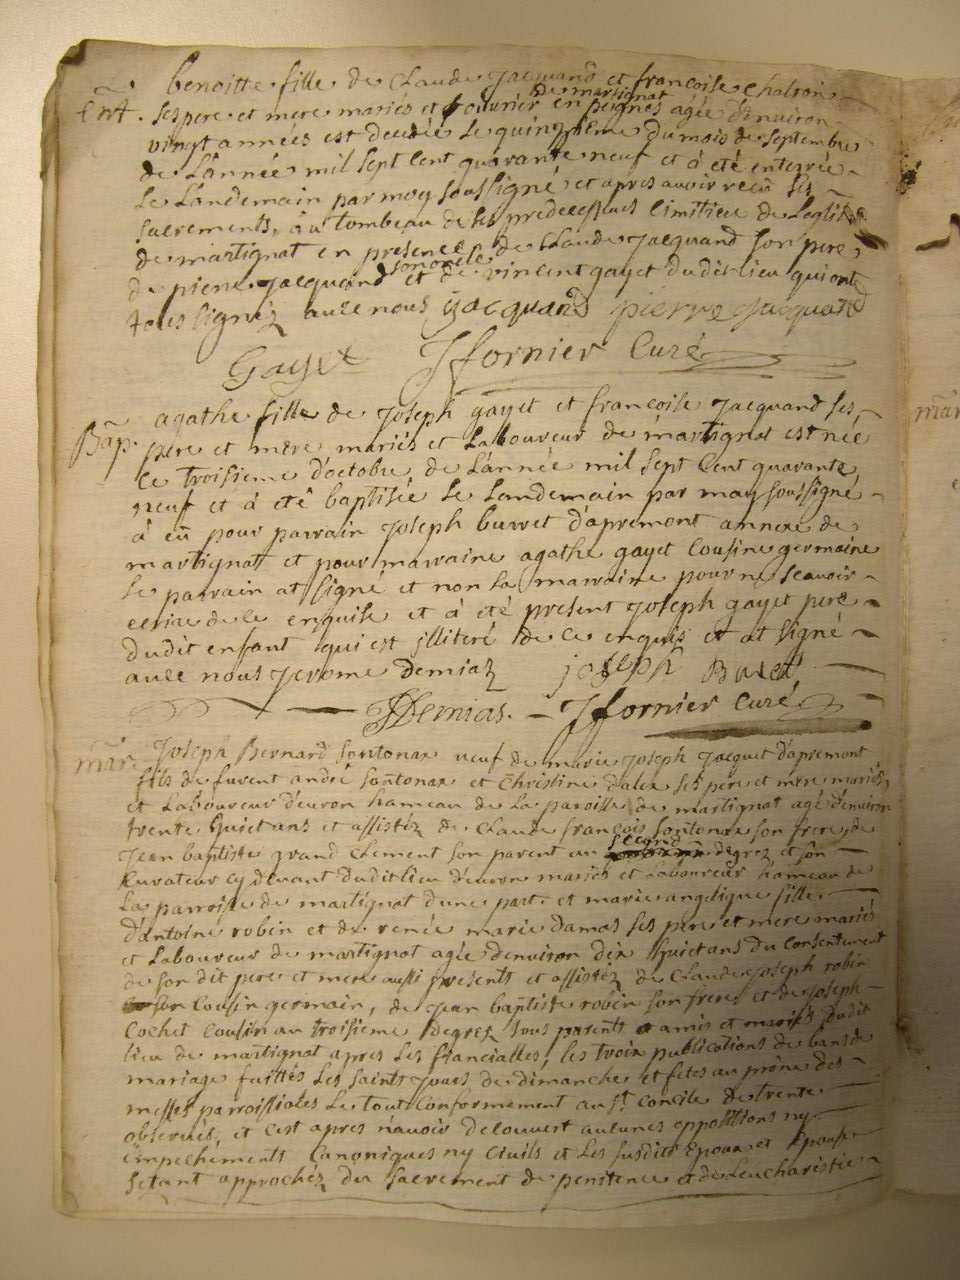 benoitte fille de Claude Jacquand et francoise Chatron
Ent. ses pere et mere mariés et ouvrier en peignes de martignat agée d'environ
vingt années est decedée le quinzieme du mois de septembre
de L'année mil sept cent quarante neuf et à été enterrée
le Landemain par moy soussigné et apres avoir recu ses
sacrements, au tombeau de ses predecesseurs cimitiere de Leglise
de martignat en presence de Claude Jacquand son pere
de pierre Jacquand son oncle et de vincent gayet dudit lieu qui ont
tous signéz avec nous CJacquand pierre Jacquand
Gayet Jfornier Curé
Bap. agathe fille de Joseph gayet et francoise Jacquand ses
pere et mere mariés et Laboureur de martignat est née
le troisieme d'octobre de L'année mil sept cent quarante
neuf et à été baptisée le Landemain par moy soussigné
à eû pour parrain Joseph burret d'apremont annexe de
martignat et pour marraine agathe gayet cousine germaine
le parrain at signé et non la marraine pour ne scavoir
ecrire de ce enquise et à été present Joseph gayet pere
dudit enfant qui est illiteré de ce enquis et at signé
avec nous Jerome Demiaz joseph Buret
JDemias. Jfornier curé
mar̃e Joseph Bernard sontonax veuf de marie Joseph Jacquet d'apremont
fils de fuvent andré sontonax et Christine dalex ses pere et mere mariés
et Laboureur d'euron hameau de la paroisse de martignat agé d'environ
trente huict ans et assistéz de Claude françois sontonax son frere, de
Jean baptiste grand clement son parent au second degrez et son
Curateur cy devant dudit lieu d'euron mariés et Laboureur hameau de
la parroisse de martignat d'une part. et marie angelique fille
d'antoine robin et de renée marie Damas ses pere et mere mariés
et Laboureur de martignat agée denviron dix huict ans du consentement
de son dit pere et mere aussi presents et assistéz de Claude Joseph robin
son Cousin germain, de Jean baptiste robin son frere et de Joseph
Cochet Cousin au troisieme degrez tous presents amis et mariés dudit
lieu de martignat apres les fiancialles, les trois publications de bans de
mariage faittés les saints Jours de dimanche et fetes au prône des
messes parroissiales le tout conformement au St. concile de trente
observés, et c'est apres n'avoir decouvert aucunes oppositions ny
empechements Canoniques ny Civils et les susdits Epoux et Epouse
s'etant approchéz du sacrement de penitence et de Leucharistie